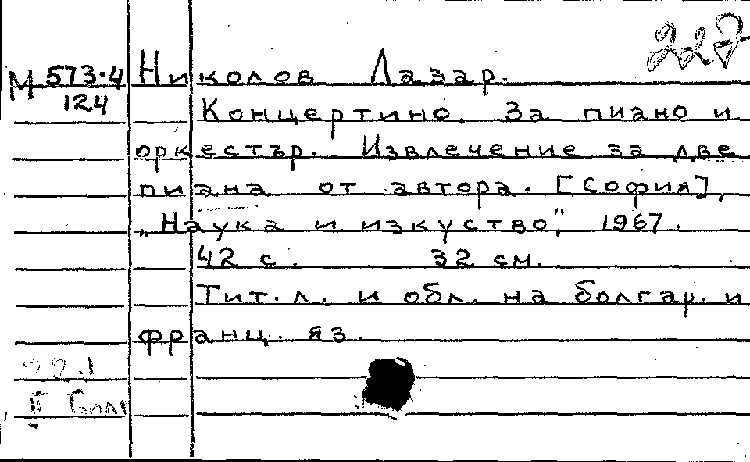 227
М 573-4
124
Николов Лазар.
Концертино. За пиано и
оркестър. Извлечение за две
пиана от автора. [София],
„Наука и изкуство", 1967.
42 с. 32 см.
Тит. л. и обл. на болгар. и
франц. яз.
II Болг